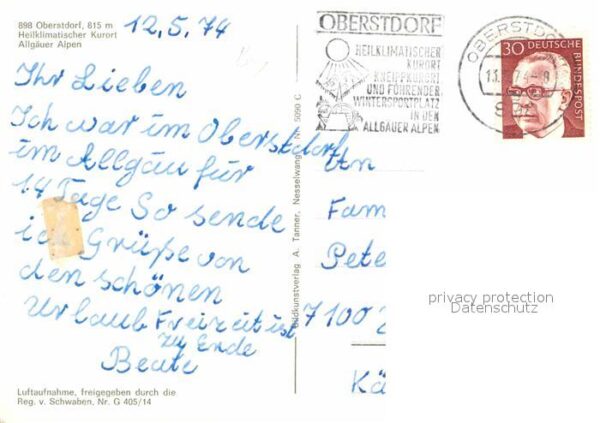 898 Oberstdorf, 815 m
Heilklimatischer Kurort
Allgäuer Alpen
12.5.74
Ihr Lieben
Ich war im Oberstdorf
im Allgäu für
14 Tage So sende
ich Grüße von
den schönen
Urlaub Freizeit ist
zu Ende
Beate
Luftaufnahme, freigegeben durch die
Reg. v. Schwaben, Nr. G 405/14
Bildkunstverlag A. Tanner, Nesselwang Nr. 5090 C
OBERSTDORF
HEILKLIMATISCHER
KURORT
KNEIPPKURORT
UND FÜHRENDER
WINTERSPORTPLATZ
IN DEN
ALLGÄUER ALPEN
OBERSTDO
30 DEUTSCHE
BUNDESPOST
An
Fam
Pete
7100
Kä
privacy protection
Datenschutz